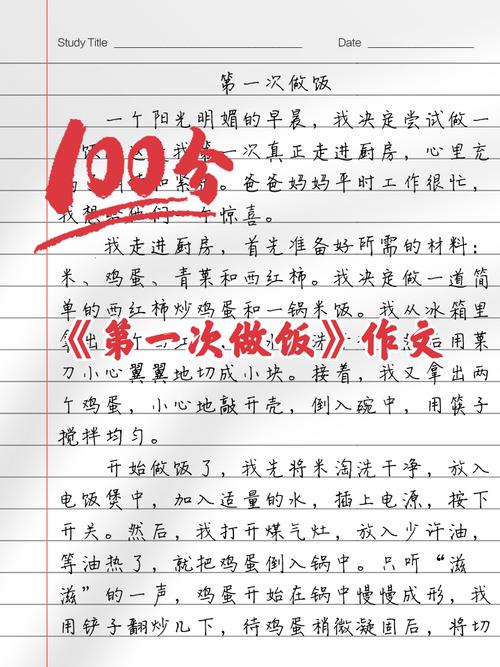 Study Title
Date
第一次做饭
一个阳光明媚的早晨，我决定尝试做一
100分
饭 我第一次真正走进厨房，心里充
和紧 。爸爸妈妈平时工作很忙，
我想给他们一个惊喜。
我走进厨房，首先准备好所需的材料：
米、鸡蛋、青菜和西红柿。我决定做一道简
单的西红柿炒鸡蛋和一锅米饭。我从冰箱里
拿出 个 洗 后用菜
《第一次做饭》作文
刀小心翼翼地切成小块。接着，我又拿出两
个鸡蛋，小心地敲开壳，倒入碗中，用筷子
搅拌均匀。
开始做饭了，我先将米淘洗干净，放入
电饭煲中，加入适量的水，插上电源，按下
开关。然后，我打开煤气灶，放入少许油，
等油热了，就把鸡蛋倒入锅中。只听“滋
滋”的一声，鸡蛋开始在锅中慢慢成形，我
用铲子翻炒几下，待鸡蛋稍微凝固后，将切